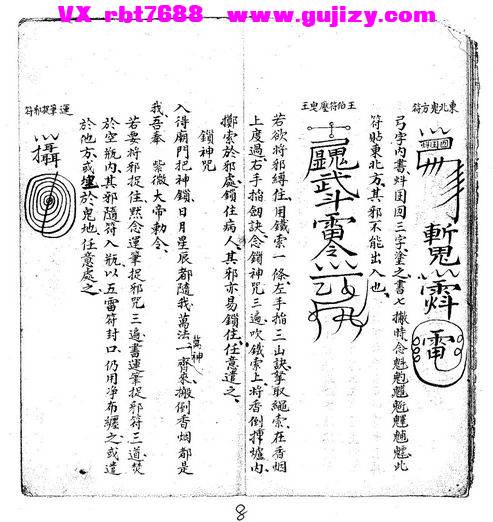 VX rbt7688 www.gujizy.com
東北鬼方符
弓字內書
囫囵三字塗之書七撇時念魁
此
符貼東北方其邪不能出入也
王伯符壓鬼王
武斗雷令
若欲将邪縛住用鐵索一條左手掐三山訣拏取繩索在香烟
上度過右手掐劒訣念鎖神咒三遍吹鐵索上将香倒摔爐內
擲索於邪處鎖住病人其邪亦易鎖住任意遣之
鎖神咒
入得廟門把神鎖日月星辰都隨我萬法一齊來搬倒香烟都是
萬神
我吾奉 紫微大帝勅令
運筆捉邪符
攝
若要将邪捉住黙念運筆捉邪咒三遍書運筆捉邪符三道焚
於空瓶內其邪隨符入瓶以五雷符封口仍用净布纏之或遣
於他方或埋於鬼地任意處之
8